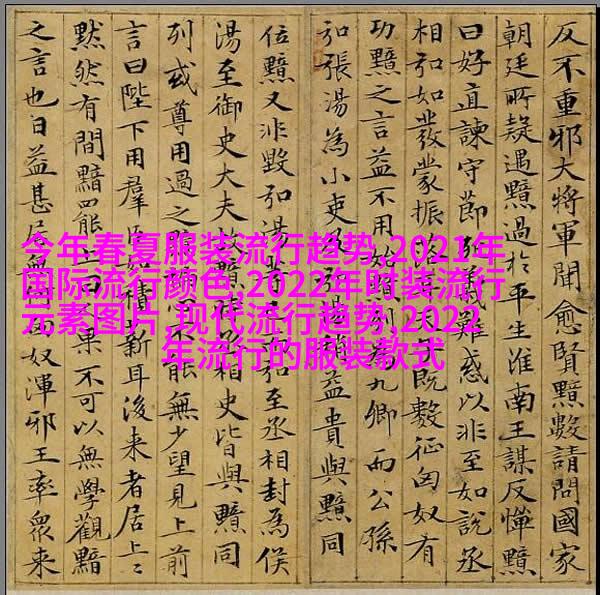 今年春夏服装流行趋势,2021年
国际流行颜色,2022年时装流行
元素图片,现代流行趋势,2022
年流行的服装款式
反不重邪大將軍聞愈賢黯數請問國家
朝廷所疑遇黯過於平生淮南王謀反憚黯
曰好直諫守節義難惑以非至如說丞
相弘如發蒙振落既數征匈奴有
功黯之言益不用始為九卿而公孫
弘張湯為小吏弘湯益貴與黯同
位黯又非毀弘湯弘至丞相封為侯
湯至御史大夫故黯相史皆與黯同
列或尊用過之不能無少望見上前
言曰陛下用羣積薪耳後來者居上上
默然有間黯罷上曰果不可以無學觀黯
之言也日益甚居無奴渾邪王率眾來